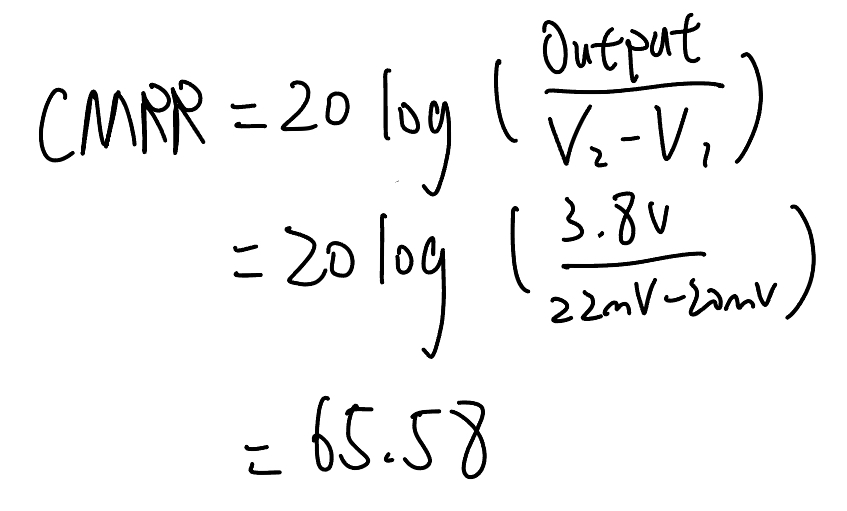 CMRR = 20 log ( Output / V₂ - V₁ )
= 20 log ( 3.8V / 22mV - 20mV )
= 65.58